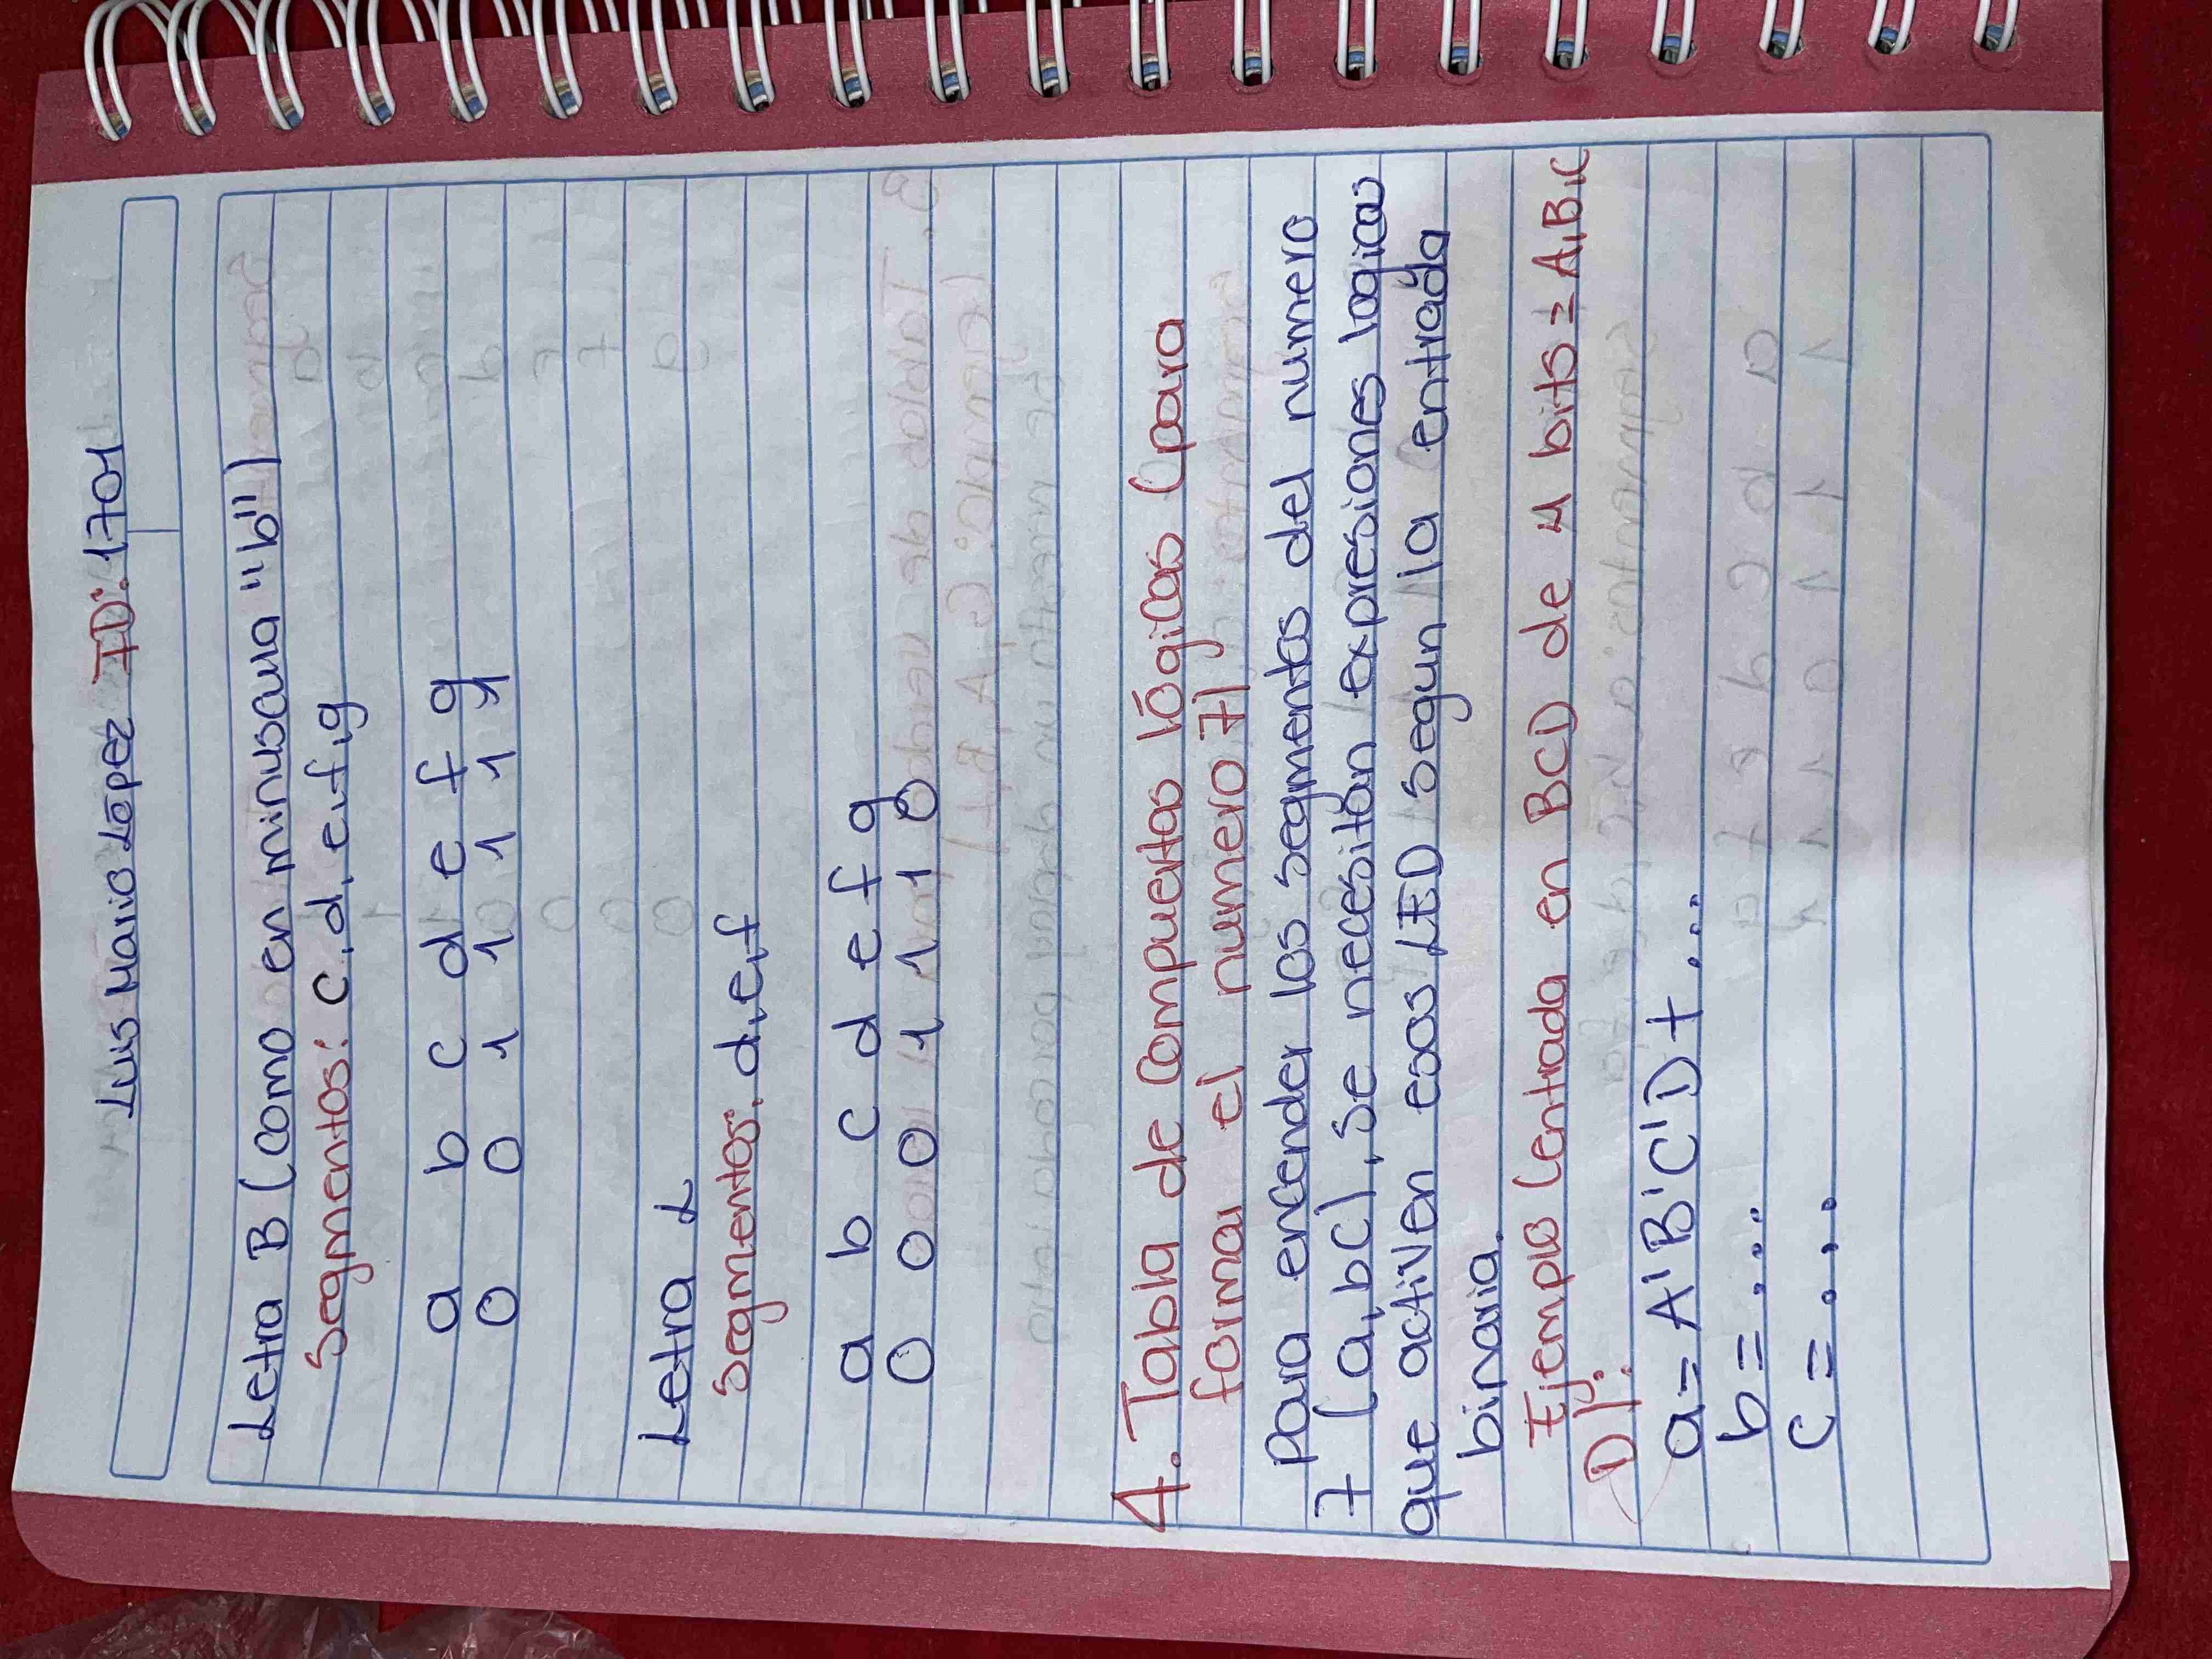 Luis Mario López ID: 1701
Letra B (como en minuscula "b")
Segmentos: c, d, e, f, g
a b c d e f g
0 0 1 1 1 1 1
Letra L
Segmentos: d, e, f
a b c d e f g
0 0 0 1 1 1 0
4. Tabla de Compuertas lógicas (para
formar el numero 7)
Para encender los segmentos del numero
7 (a, b c), se necesitan expresiones logicas
que activen esos LED segun la entrada
binaria.
Ejemplo (entrada en BCD de 4 bits = A, B, C
D):
a = A'B'C'D + ...
b = ....
c = ....